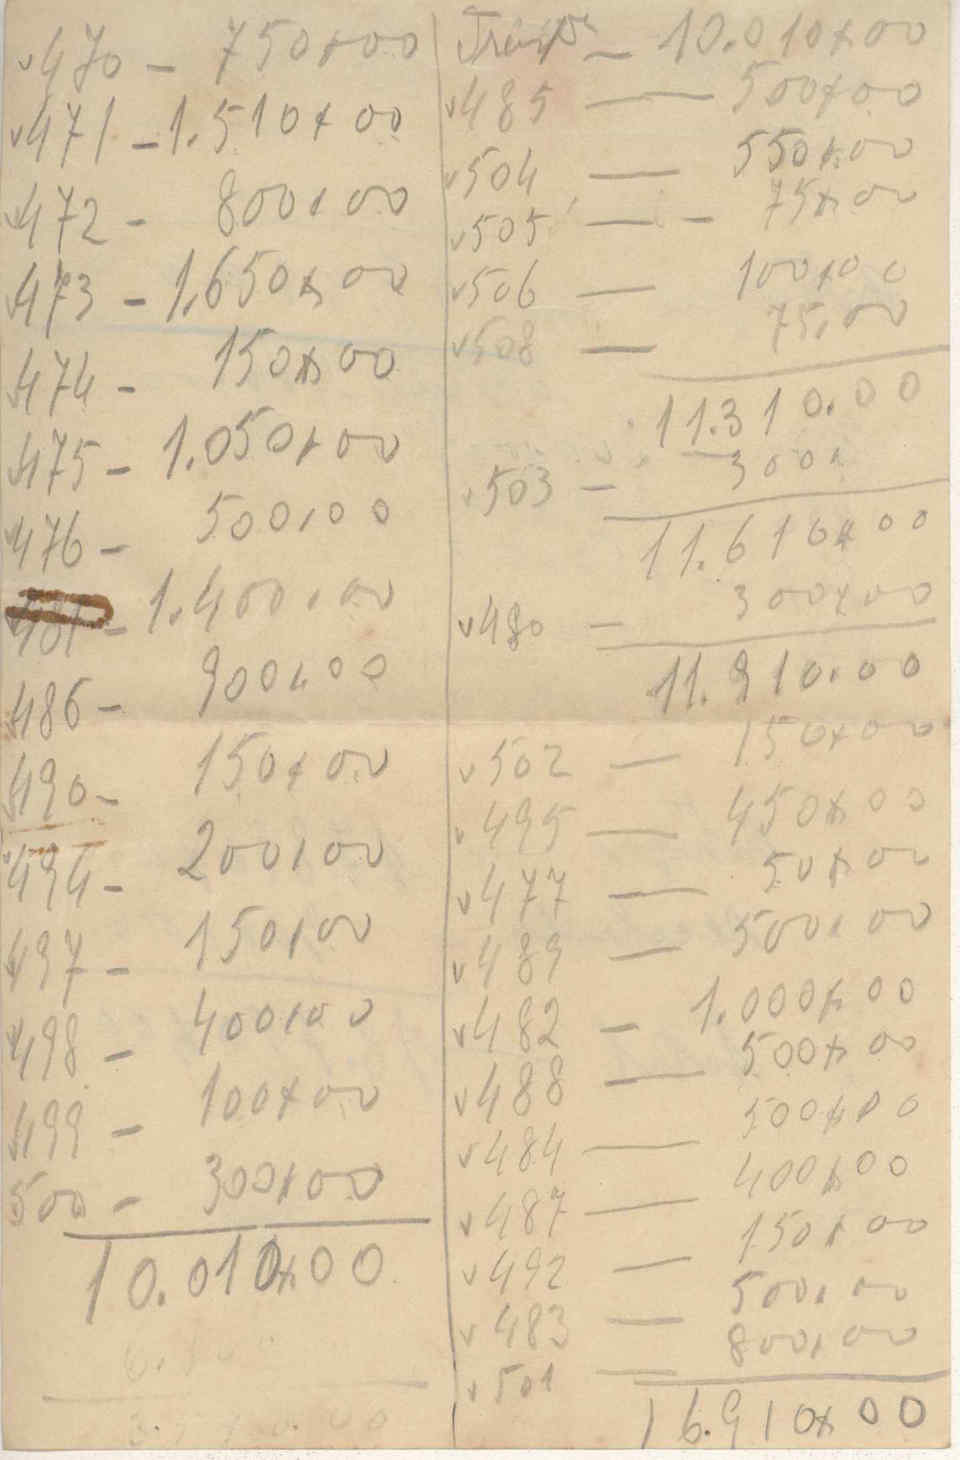 v470 - 750x00
v471 - 1.510x00
v472 - 800,00
v473 - 1.650x00
v474 - 150x00
v475 - 1.050,00
v476 - 500,00
481 - 1.400,00
v486 - 900,00
v490 - 150x00
v494 - 200,00
v497 - 150,00
v498 - 400,00
v499 - 100x00
500 - 300,00
10.010x00
Transpe - 10.010x00
v485 - 500x00
v504 - 550x00
v505 - - 75x00
v506 - 100x00
v508 - 75,00
11.310.00
v503 - 300,
11.610x00
v480 - 300x00
11.910.00
v502 - 150x00
v495 - 450x00
v477 - 50x00
v489 - 500,00
v482 - 1.000x00
v488 - 500x00
v484 - 500x00
v487 - 400x00
v492 - 150x00
v483 - 500,00
v501 - 800,00
16.910x00